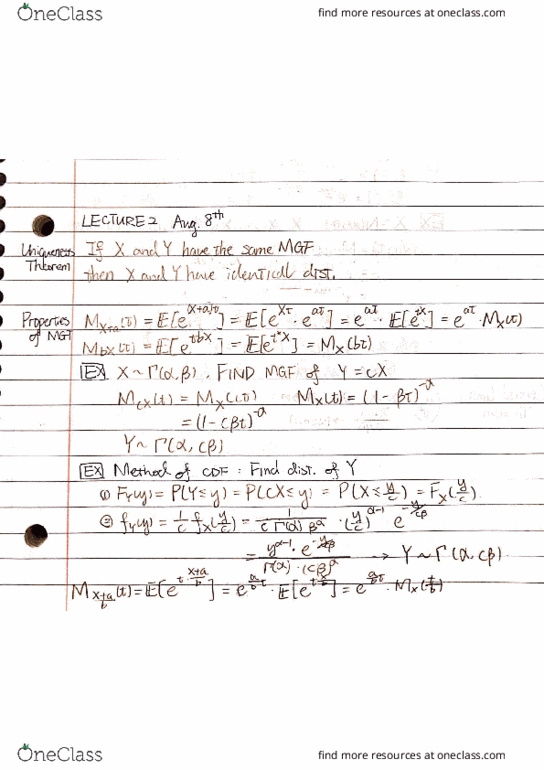 OneClass
find more resources at oneclass.com
LECTURE 2 Aug. 8th
Uniqueness Theorem
If X and Y have the same MGF
then X and Y have identical dist.
Properties of MGF
M_{X+a}(t) = E[e^{(X+a)t}] = E[e^{Xt} · e^{at}] = e^{at} · E[e^{tX}] = e^{at} · M_X(t)
M_{bX}(t) = E[e^{tbX}] = E[e^{t*X}] = M_X(bt)
EX X ~ Γ(α, β). FIND MGF of Y = cX
M_{cX}(t) = M_X(ct) M_X(t) = (1 - βt)^{-α}
= (1 - cβt)^{-α}
Y ~ Γ(α, cβ)
EX Method of CDF : Find dist. of Y
① F_Y(y) = P(Y ≤ y) = P(cX ≤ y) = P(X ≤ y/c) = F_X(y/c).
② f_Y(y) = 1/c f_X(y/c) = 1/(c Γ(α) β^α) · (y/c)^{α-1} e^{-y/cβ}
= y^{α-1} · e^{-y/cβ} / (Γ(α) · (cβ)^α) → Y ~ Γ(α, cβ).
M_{(X+a)/b}(t) = E[e^{t (X+a)/b}] = e^{(a/b)t} · E[e^{t X/b}] = e^{(a/b)t} · M_X(t/b)
OneClass
find more resources at oneclass.com